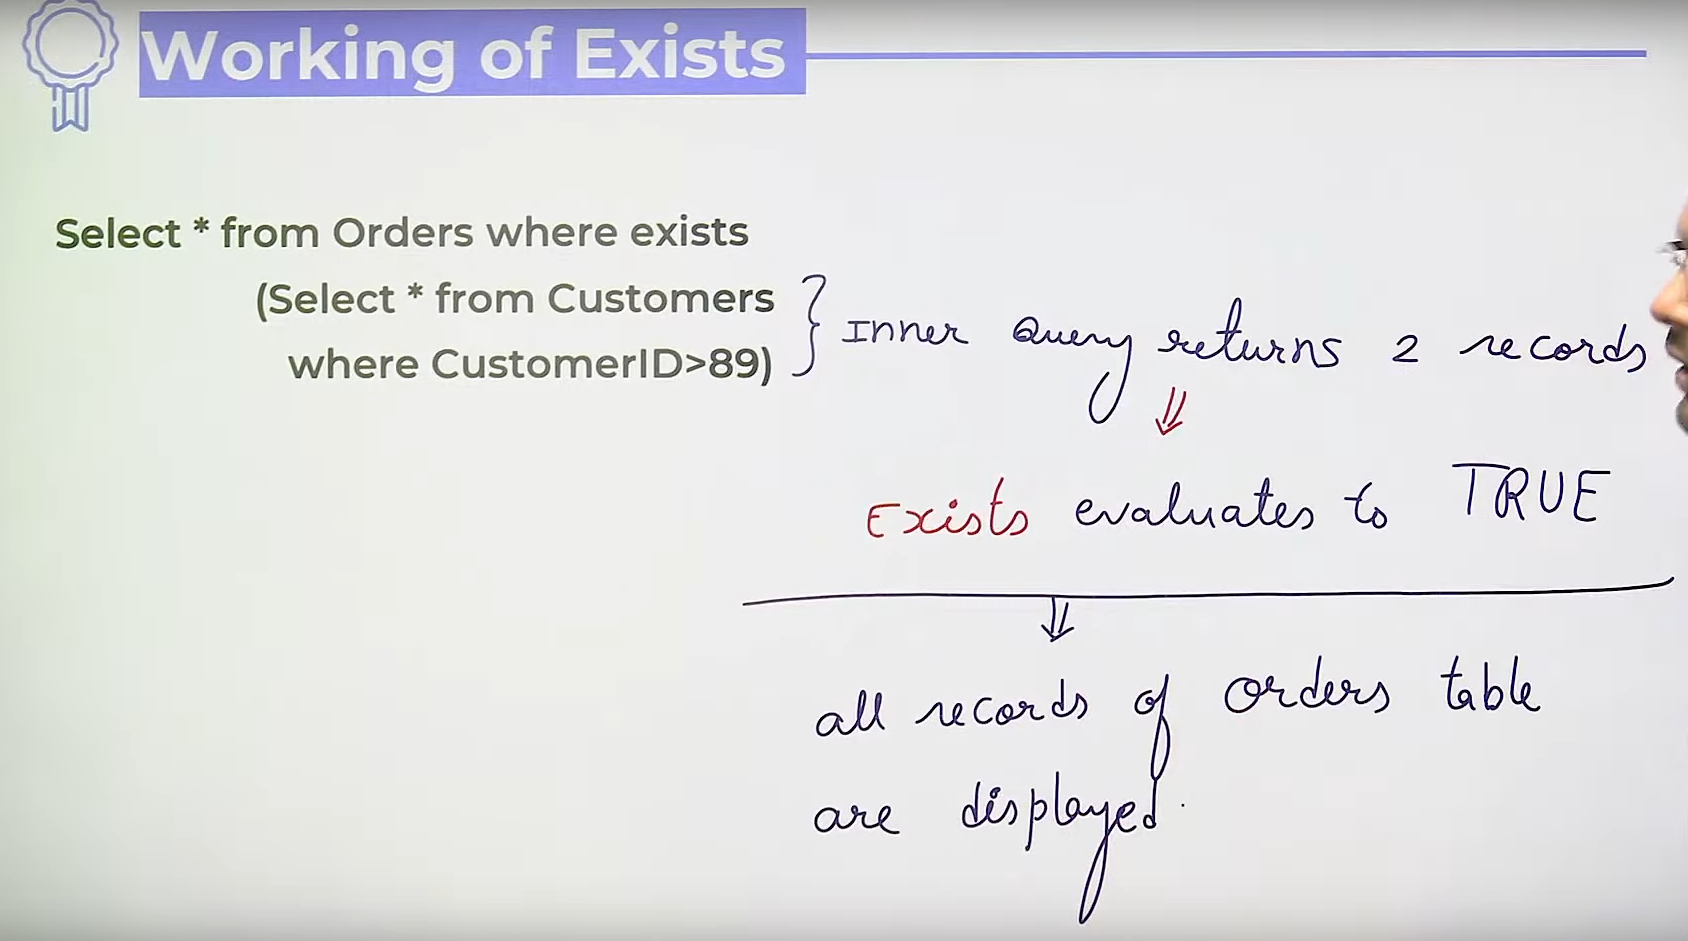 Working of Exists
Select * from Orders where exists
(Select * from Customers
where CustomerID>89)
Inner Query returns 2 records
Exists evaluates to TRUE
all records of orders table
are displayed.